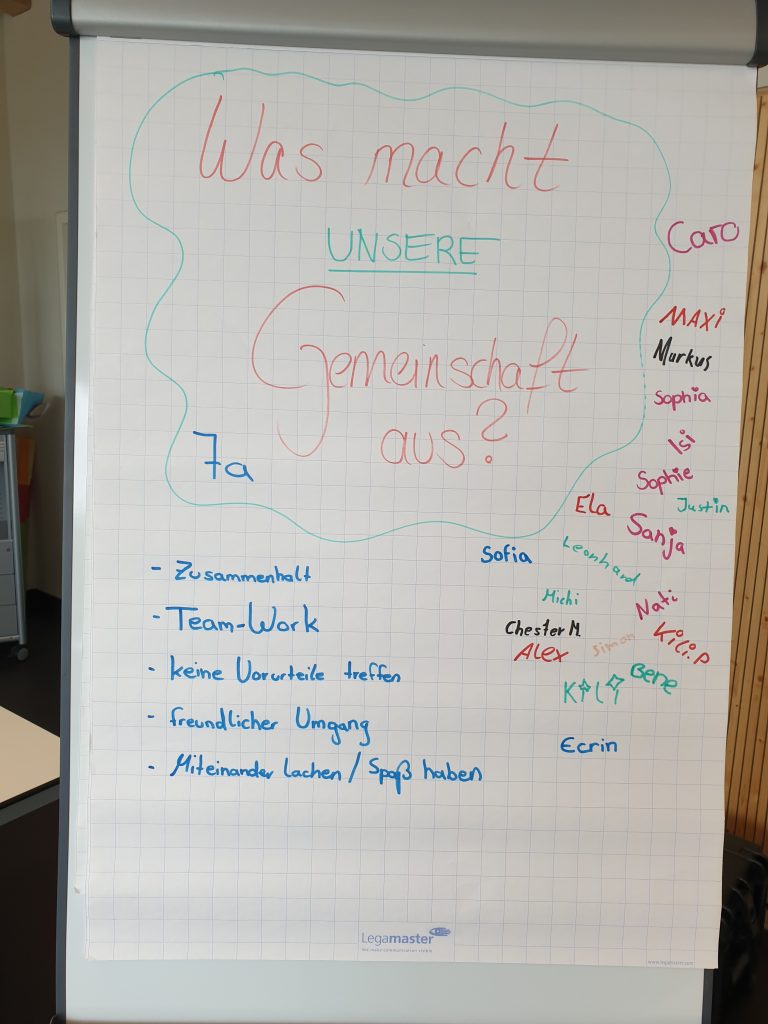 Was macht
UNSERE
Gemeinschaft
aus?
7a
- Zusammenhalt
- Team-Work
- keine Vorurteile treffen
- freundlicher Umgang
- Miteinander lachen / Spaß haben
Caro
MAXi
Markus
Sophia
Isi
Sophie
Justin
Ela
Sanja
Sofia
Leonhard
Michi
Nati
Chester M.
Kili.P
Simon
ALEX
Bene
KiLi
Ecrin
Legamaster
www.legamaster.com